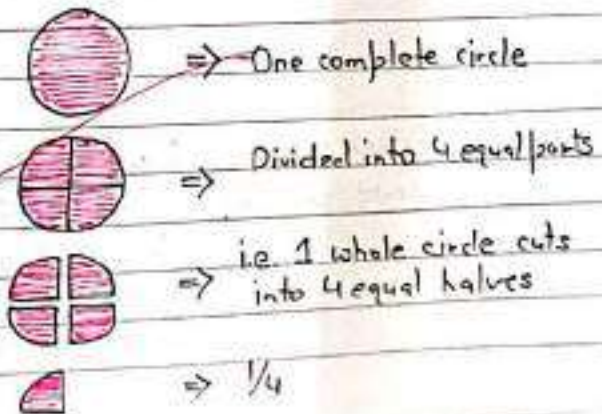 ⇒ One complete circle
⇒ Divided into 4 equal parts
⇒ i.e 1 whole circle cuts
into 4 equal halves
⇒ 1/4